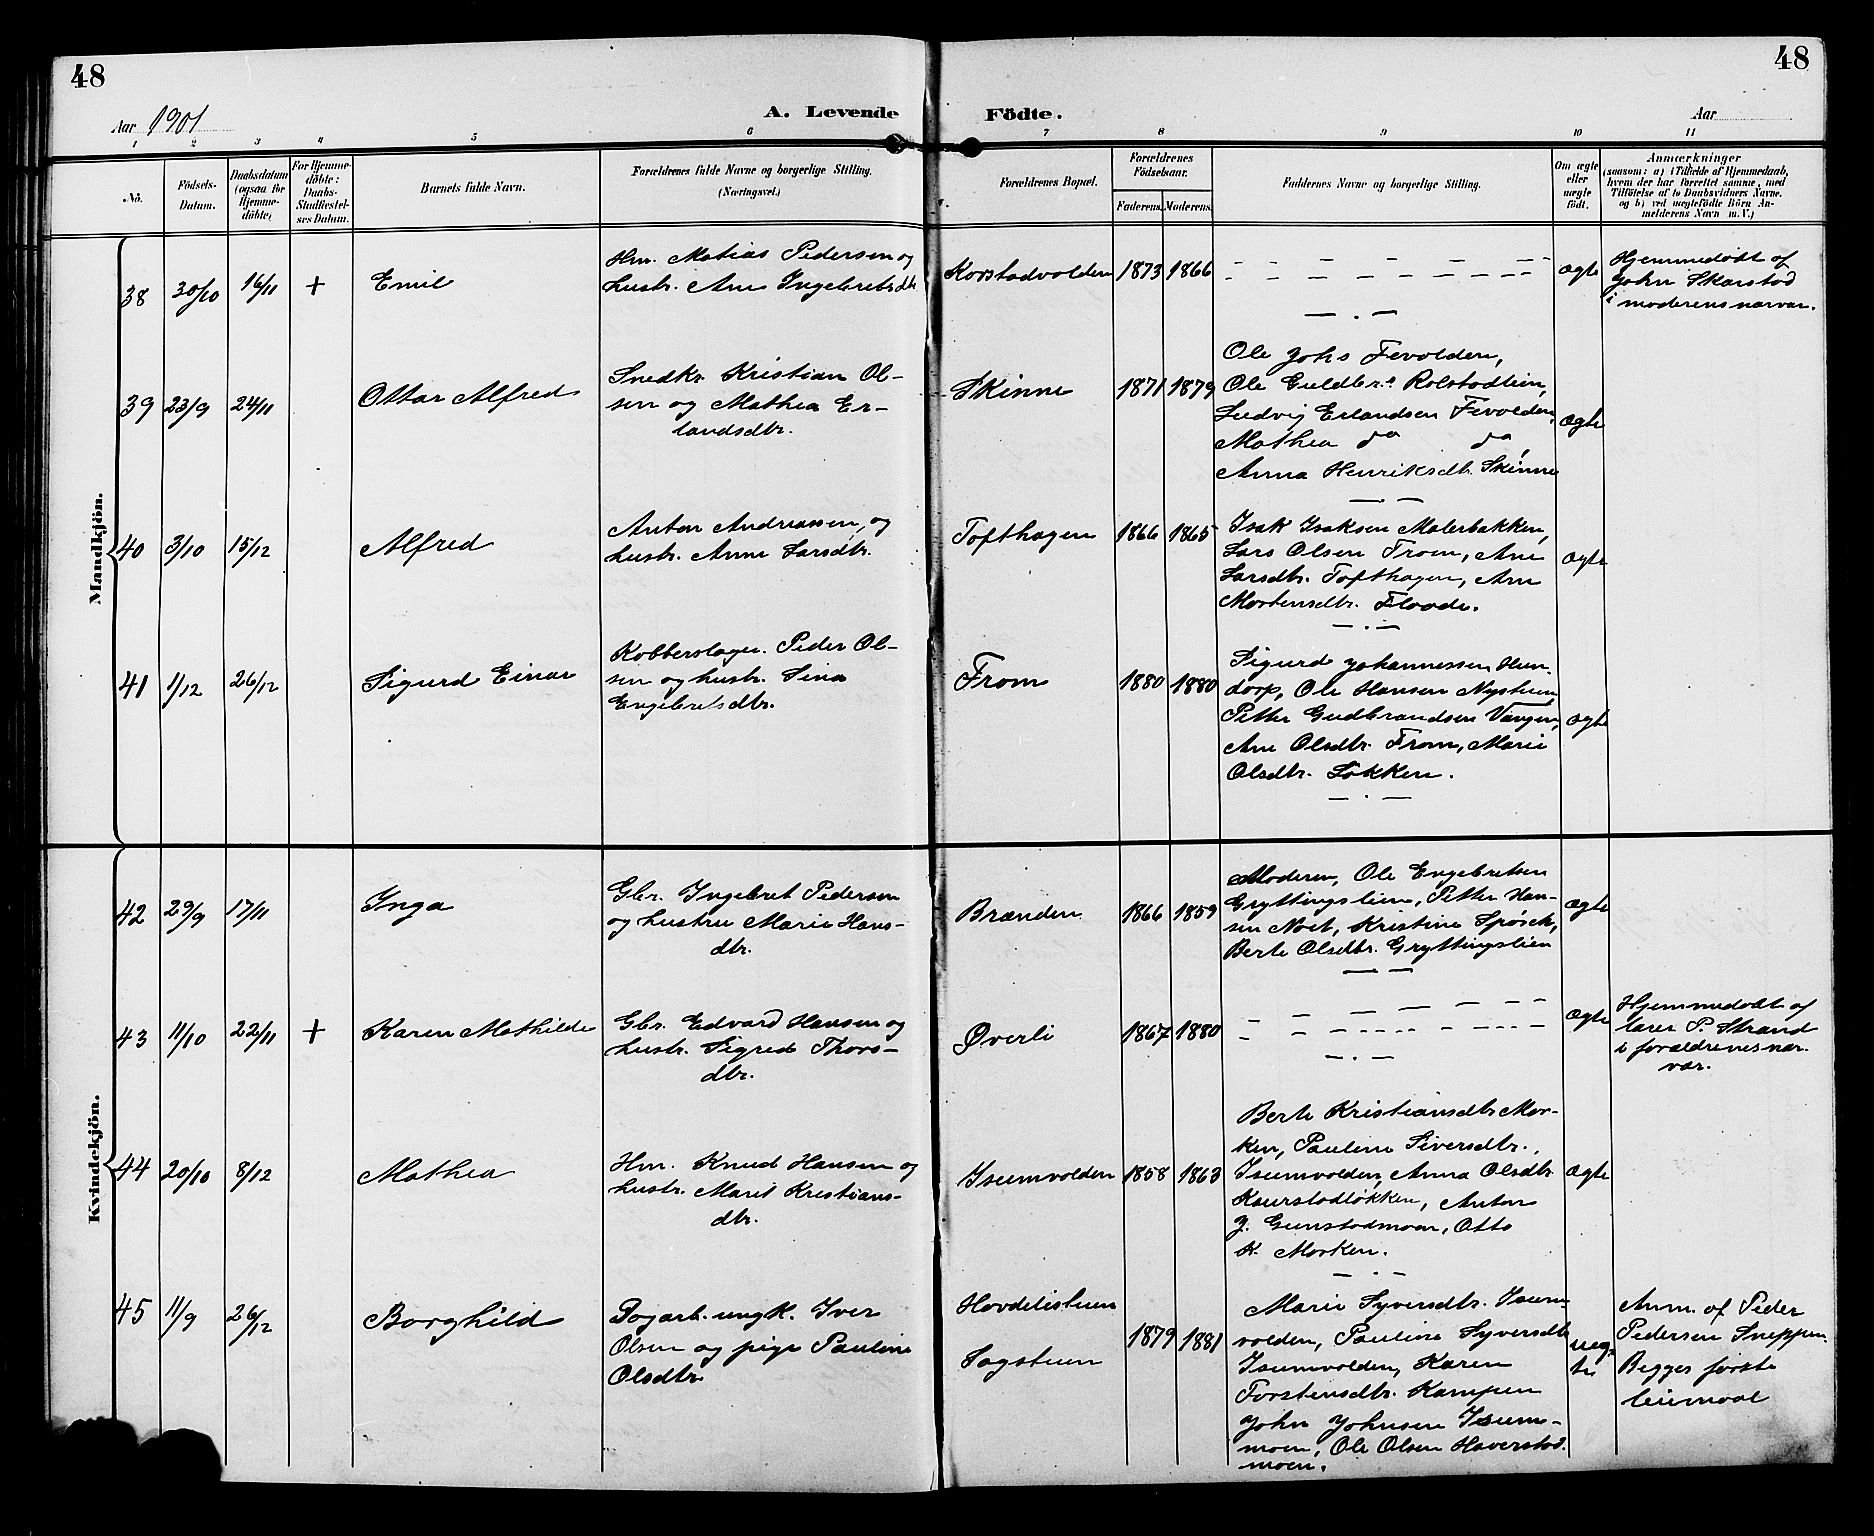 48
48
Aar 1901
A. Levende
Födte.
Aar
1 2 3 4 5 6 7 8 9 10 11
No.
Födsels-
Datum.
Daabsdatum
(ogsaa for
Hjemme-
döbte)
For Hjemme-
döbte:
Daabs-
Stadfæstel-
ses Datum.
Barnets fulde Navn.
Forældrenes fulde Navne og borgerlige Stilling.
(Næringsvei.)
Forældrenes Bopæl.
Forældrenes
Födselsaar.
Faderens.
Moderens.
Faddernes Navne og borgerlige Stilling.
Om ægte
eller
uægte
födt.
Anmærkninger
(saasom: a) i Tilfælde af Hjemmedaab,
hvem der har forrettet samme, med
Tilföielse af to Daabsvidners Navne,
og b) ved uægtefödte Börn An-
melderens Navn m. V.)
Mandkjön.
38 30/10 16/11 + Emil
Hm. Matias Pedersen og
hustr. Ane Ingebretsdtr
Korstadvolden 1873 1866
ægte
Hjemmedøbt af
John Skarstad
i moderens nærvær.
39 23/9 24/11 Ottar Alfred
Snedkr. Kristian Ol-
sen og Mathea Er-
landsdtr.
Skinne 1871 1879
Ole Johs Fevolden,
Ole Guldbr. Rolstadlien,
Ludvig Erlandsen Fevolden,
Mathea do do,
Anna Henriksdtr. Skinne
ægte
40 3/10 15/12 Alfred
Anton Andreassen, og
hustr. Anne Larsdtr.
Tofthagen 1866 1865
Isak Isaksen Malerbakken,
Lars Olsen From, Ane
Larsdtr. Tofthagen, Ane
Mortensdtr. Flaade.
ægte
41 1/12 26/12 Sigurd Einar
Kobberslager. Peder Ol-
sen og hustr. Sina
Engebretsdtr.
From 1880 1880
Sigurd Johannessen Hun-
dorp, Ole Hansen Nystuen,
Petter Gudbrandsen Vangen,
Ane Olsdtr. From, Marie
Olsdtr. Løkken.
ægte
Kvindekjön.
42 29/9 17/11 Inga
Gbr. Ingebret Pedersen
og hustru Marie Hans-
dtr.
Brænden 1866 1859
Moderen, Ole Engebretsen
Gryttingslien, Petter Han-
sen Noet, Kristine
Berte Olsdtr. Gryttingslien
ægte
43 11/10 22/11 + Karen Mathilde
Gbr. Edvard Hansen og
hustr. Sigrid Thors-
dtr.
Øverli 1867 1880
ægte
Hjemmedøbt af
lærer P. Strand
i forældrenes nær-
vær.
44 20/10 8/12 Mathea
Hm. Knud Hansen og
hustr. Marit Kristians-
dtr.
Isumvolden 1858 1863
Berte Kristiansdtr Mor-
ken, Pauline Siversdtr.,
Isumvolden, Anna Olsdtr
Kaurstadløkken, Anton
J. Gunstadmoen, Otto
K. Morken.
ægte
45 11/9 26/12 Borghild
Dagarb. ungk. Iver
Olsen og pige Pauline
Olsdtr
Hovdelistuen
Sagstuen
1879 1881
Marie Syversdtr. Isum-
volden, Pauline Syversdtr
Isumvolden, Karen
Torstensdtr. Kampen
John Johnsen Isum-
moen, Ole Olsen Haverstad
moen.
uæg-
te
Anm. af Peder
Pedersen Sneppen.
Begges første
leiemaal